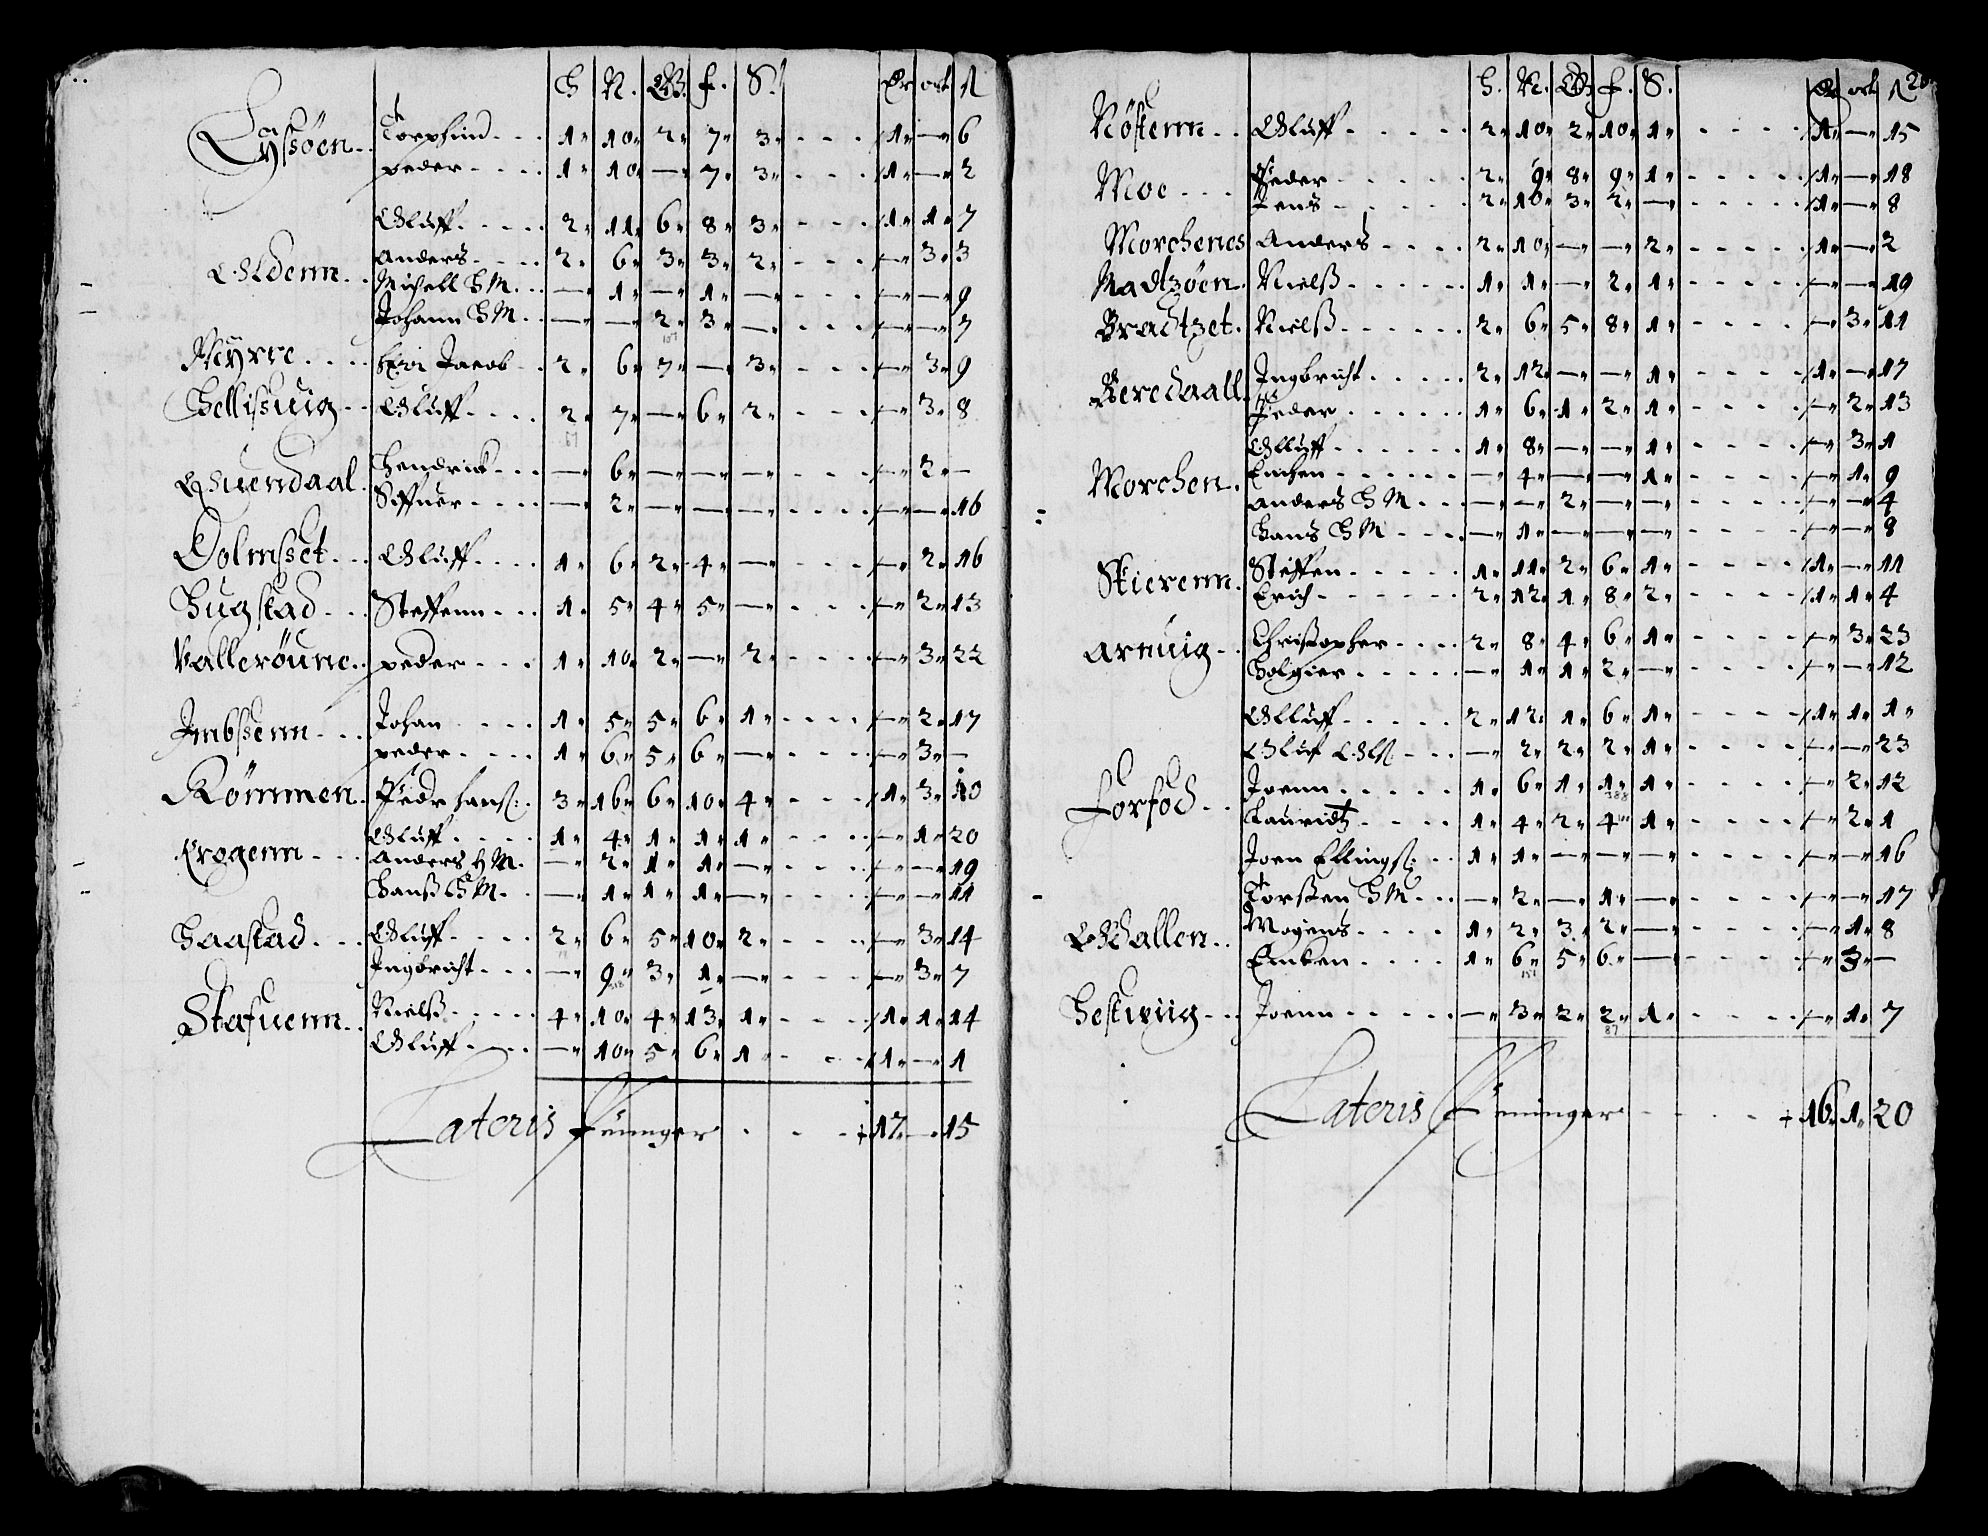 H N. Q. f. S. Dr ort ß
Lyssöen Torphind 1 10 2 7 3 1 — 6
peder 1 10 — 7 3 1 — 2
Oluff 2 11 6 8 3 1 1 7
Oldenn Anders 2 6 3 3 2 — 3 3
Michell H M — 1 — 1 — — — 9
Johann H M — — 2 3 — — — 7
Myrre Jacob 2 6 7 — 3 — 3 9
Hellissuig Oluff 2 7 — 6 2 — 3 8
Quendaal Hendrick — 6 — — — — 2 —
Siffuer — 2 — — — — — 16
Dolmsset Oluff 1 6 2 4 — — 2 16
Hugstad Steffenn 1 5 4 5 — — 2 13
Vallerōune peder 1 10 2 — 2 — 3 22
Imbssenn Johan 1 5 5 6 1 — 2 17
peder 1 6 5 6 — — 3 —
Römmen Peder hanß: 3 16 6 10 4 1 3 10
Krogenn Oluff 1 4 1 1 1 — 1 20
Anders H M — 2 1 1 — — — 19
Hanß H M — 1 1 1 — — — 11
Haastad Oluff 2 6 5 10 2 — 3 14
Ingbricht — 9 3 1 — — 3 7
Stafuenn Nielß 4 10 4 13 1 1 1 14
Oluff — 10 5 6 1 1 — 1
Lateris Penninger 17 — 15
H. N. Q. f. S. Dr ort ß 20
Nöstenn Oluff 2 10 2 10 1 1 — 15
Moe Peder 2 9 8 9 1 1 — 18
Jens 2 10 3 2 — 1 — 8
Morchenes Anders 2 10 — — 2 1 — 2
Madtzöen Nielß 1 1 — 2 1 — — 19
Bradtzet Nielß 2 6 5 8 1 — 3 11
Beredaall Ingbricht 2 12 — — 1 1 — 17
Peder 1 6 1 2 1 — 2 13
Morchen Olluff 1 8 — — 1 — 3 1
Enichen — 4 — — 1 — 1 9
Anders H M — — 2 — — — — 4
Hans H M — 1 — — — — — 8
Skierenn Steffen 1 11 2 6 1 1 — 11
Erich 2 12 1 8 2 1 1 4
Arnuig Christopher 2 8 4 6 1 — 3 23
Holgier — 1 1 2 — — — 12
Forfod Olluff 2 12 1 6 1 1 1 1
Oluf Olß — 2 2 2 1 — — 23
Joenn 1 6 1 1 1 — 2 12
Lauridtz 1 4 2 4 1 — 2 1
Joen Ellingß: 1 1 — — — — — 16
Torsten H M — 2 — 1 — — — 17
Odallen Mogens 1 2 3 2 — — 1 8
Encken 1 6 5 6 — — 3 —
Hestwiig Joenn — 3 2 2 1 — 1 7
Lateris Penninger 16 1 20